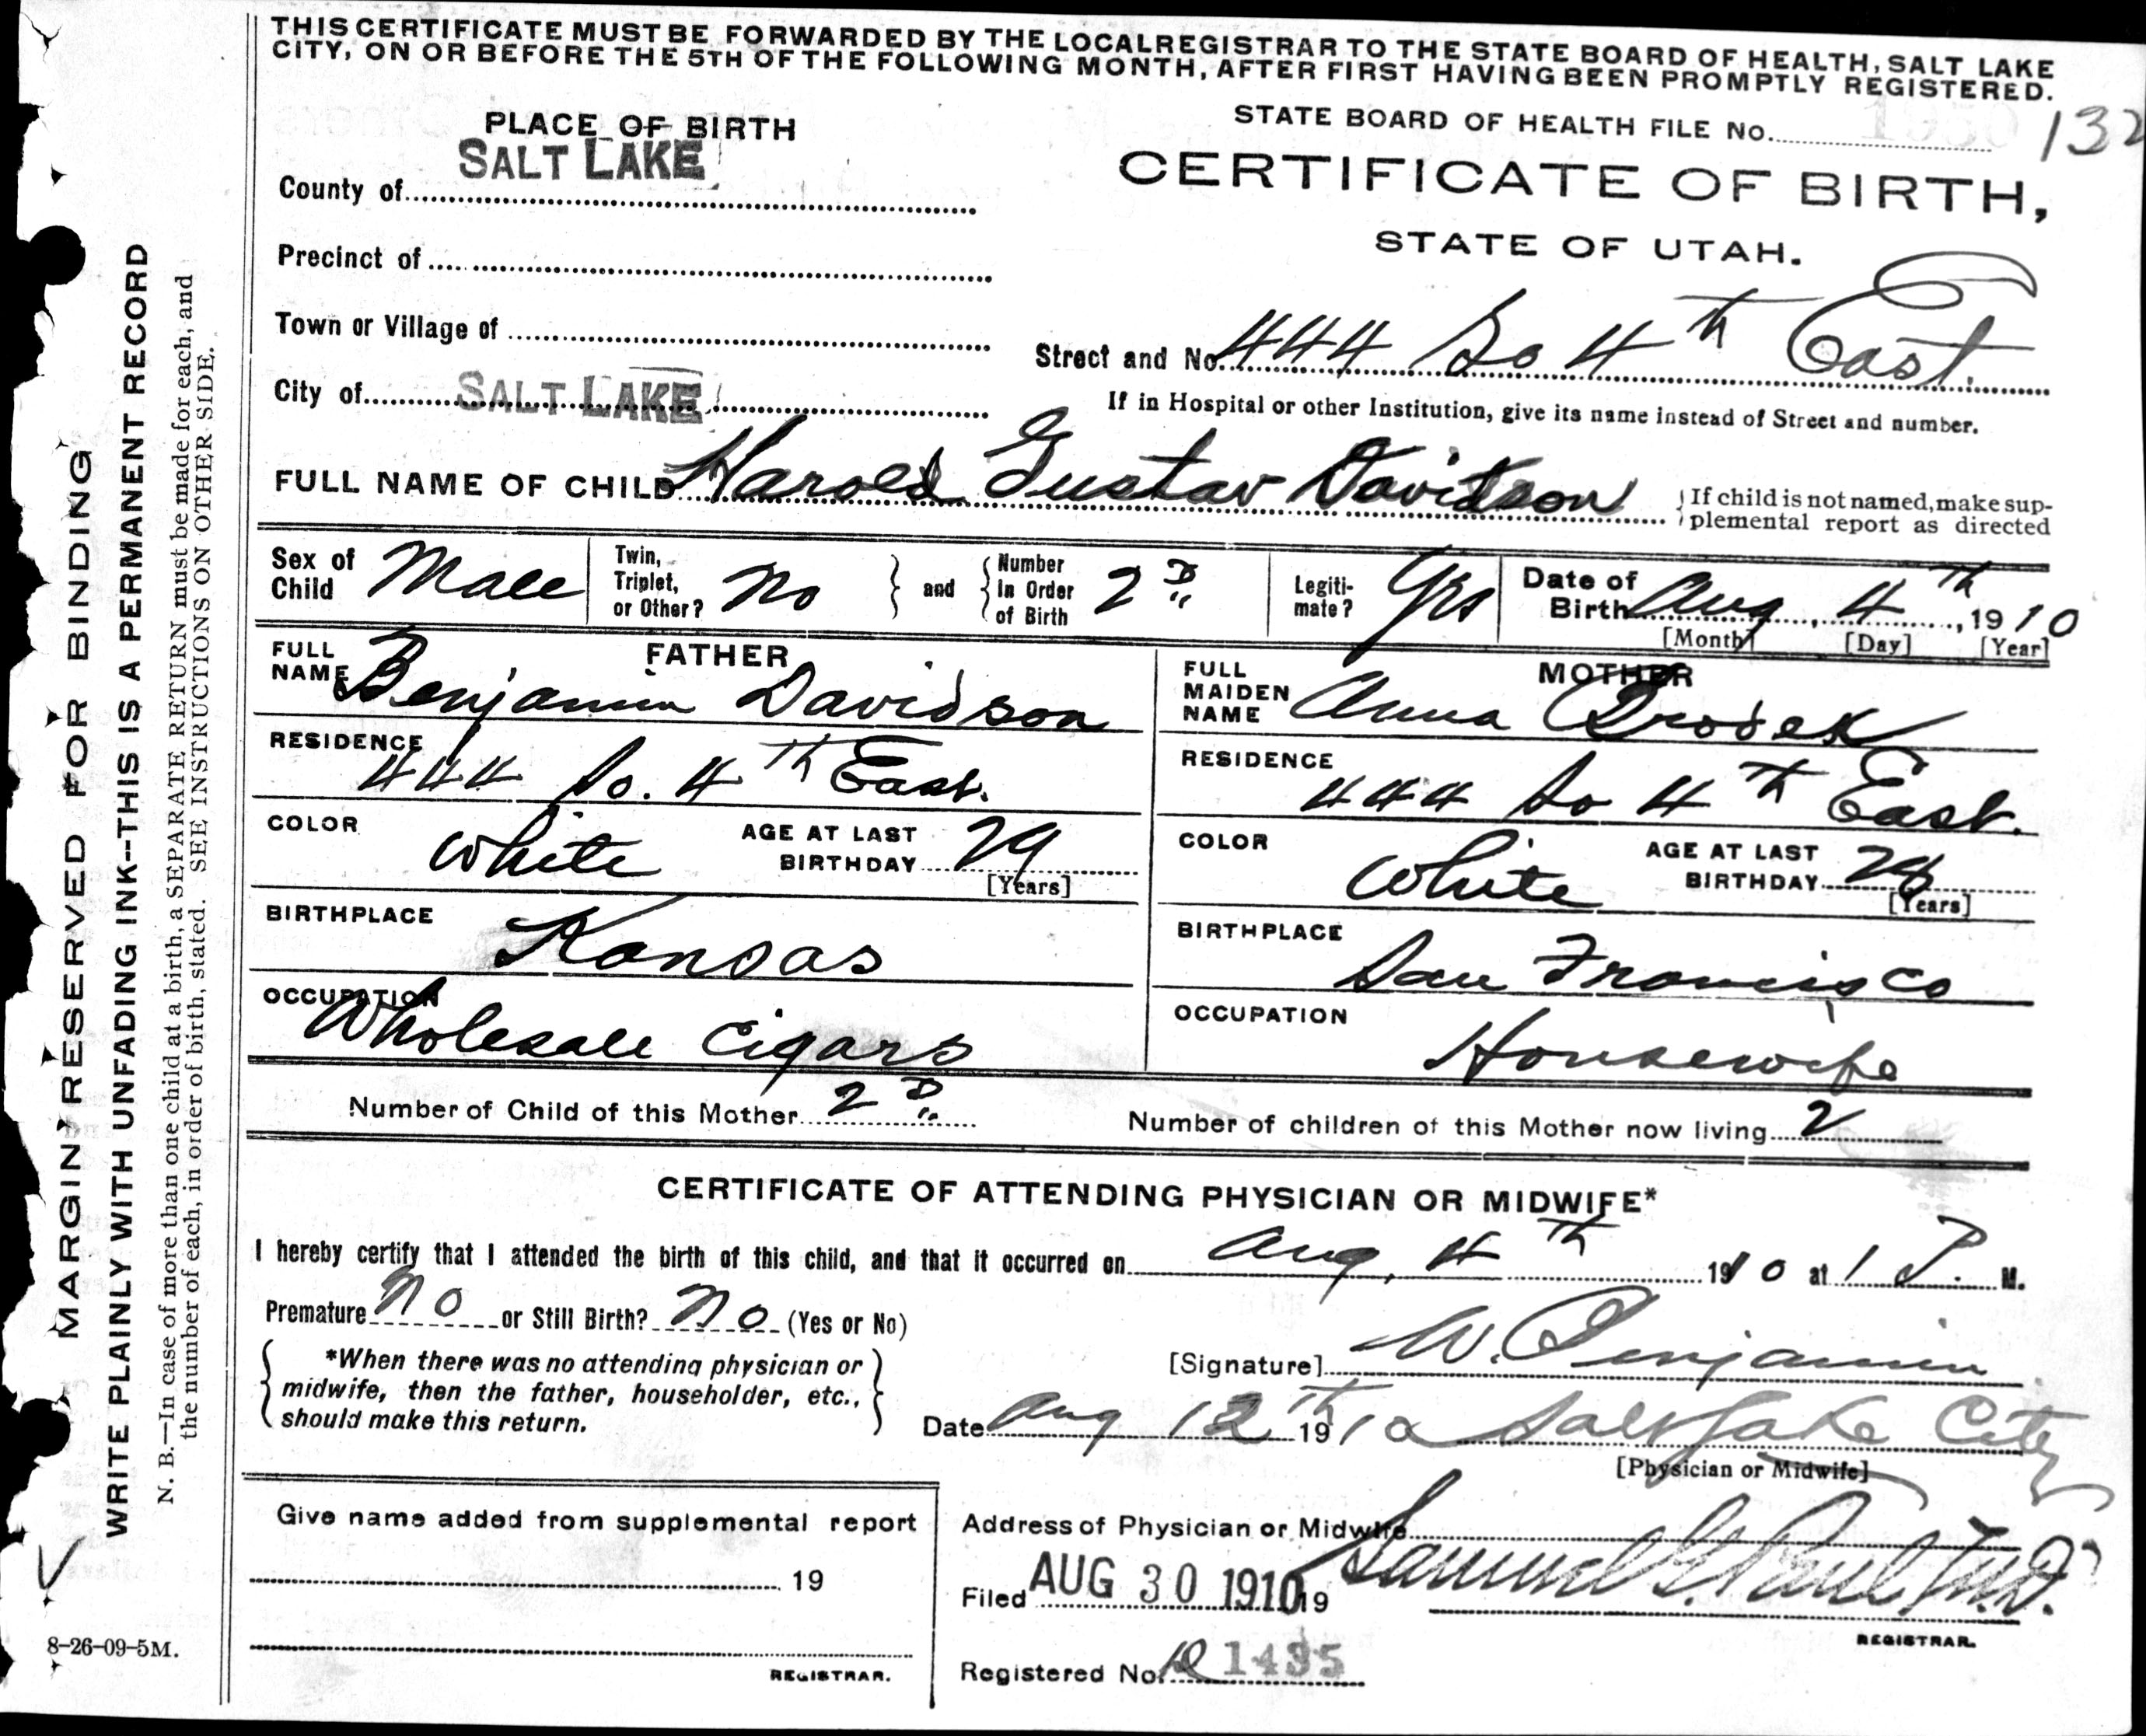 THIS CERTIFICATE MUST BE FORWARDED BY THE LOCAL REGISTRAR TO THE STATE BOARD OF HEALTH, SALT LAKE
CITY, ON OR BEFORE THE 5TH OF THE FOLLOWING MONTH, AFTER FIRST HAVING BEEN PROMPTLY REGISTERED.
STATE BOARD OF HEALTH FILE No. 132
PLACE OF BIRTH
CERTIFICATE OF BIRTH,
STATE OF UTAH.
County of SALT LAKE
Precinct of
Town or Village of
City of SALT LAKE
Street and No. 444 So 4th East.
If in Hospital or other Institution, give its name instead of Street and number.
FULL NAME OF CHILD Harold Gustav Davidson
If child is not named, make sup-
plemental report as directed
Sex of Child Male
Twin, Triplet, or Other? No and Number In Order of Birth 2D
Legiti-mate? Yes
Date of Birth Aug, 4th, 1910
[Month] [Day] [Year]
FATHER
FULL NAME Benjamin Davidson
RESIDENCE 444 So. 4th East.
COLOR White AGE AT LAST BIRTHDAY 29
[Years]
BIRTHPLACE Kansas
OCCUPATION Wholesale Cigars
MOTHER
FULL MAIDEN NAME Anna
RESIDENCE 444 So 4th East.
COLOR White AGE AT LAST BIRTHDAY
[Years]
BIRTHPLACE San Francisco
OCCUPATION Housewife
Number of Child of this Mother 2D
Number of children of this Mother now living 2
CERTIFICATE OF ATTENDING PHYSICIAN OR MIDWIFE*
I hereby certify that I attended the birth of this child, and that it occurred on Aug, 4th 1910 at 1 P. M.
Premature No or Still Birth? No (Yes or No)
*When there was no attending physician or
midwife, then the father, householder, etc.,
should make this return.
[Signature] W. Benjamin
Date Aug 12th 1910 Salt Lake City
[Physician or Midwife]
Give name added from supplemental report
19
REGISTRAR.
Address of Physician or Midwife
Filed AUG 30 1910 19 Samuel G. Paul, M.D.
REGISTRAR.
Registered No. 1435
MARGIN RESERVED FOR BINDING
WRITE PLAINLY WITH UNFADING INK--THIS IS A PERMANENT RECORD
N. B.—In case of more than one child at a birth, a SEPARATE RETURN must be made for each, and
the number of each, in order of birth, stated. SEE INSTRUCTIONS ON OTHER SIDE.
8-26-09-5M.